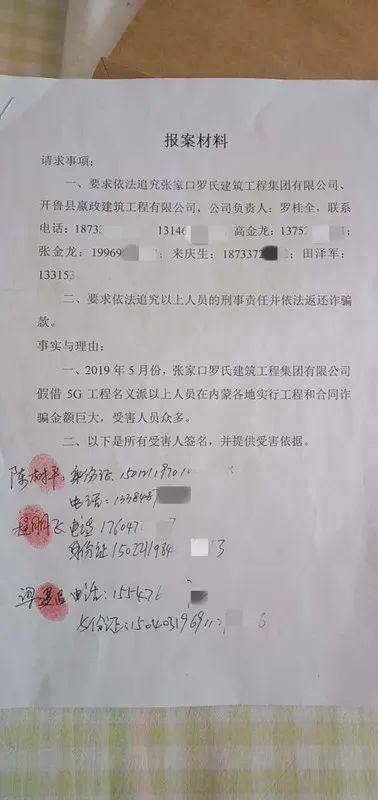 报案材料
请求事项：
一、要求依法追究张家口罗氏建筑工程集团有限公司、
开鲁县嬴政建筑工程有限公司，公司负责人：罗桂全，联系
电话：1873 13146 高金龙：1375
张金龙：19969 来庆生：187337 田泽军：
133153
二、要求依法追究以上人员的刑事责任并依法返还诈骗
款。
事实与理由：
一、2019 年 5 月份，张家口罗氏建筑工程集团有限公司
假借 5G 工程名义派以上人员在内蒙各地实行工程和合同诈
骗金额巨大，受害人员众多。
二、以下是所有受害人签名，并提供受害依据。
陈 平，身份证
电话：
电话
身份证
电话：
身份证：